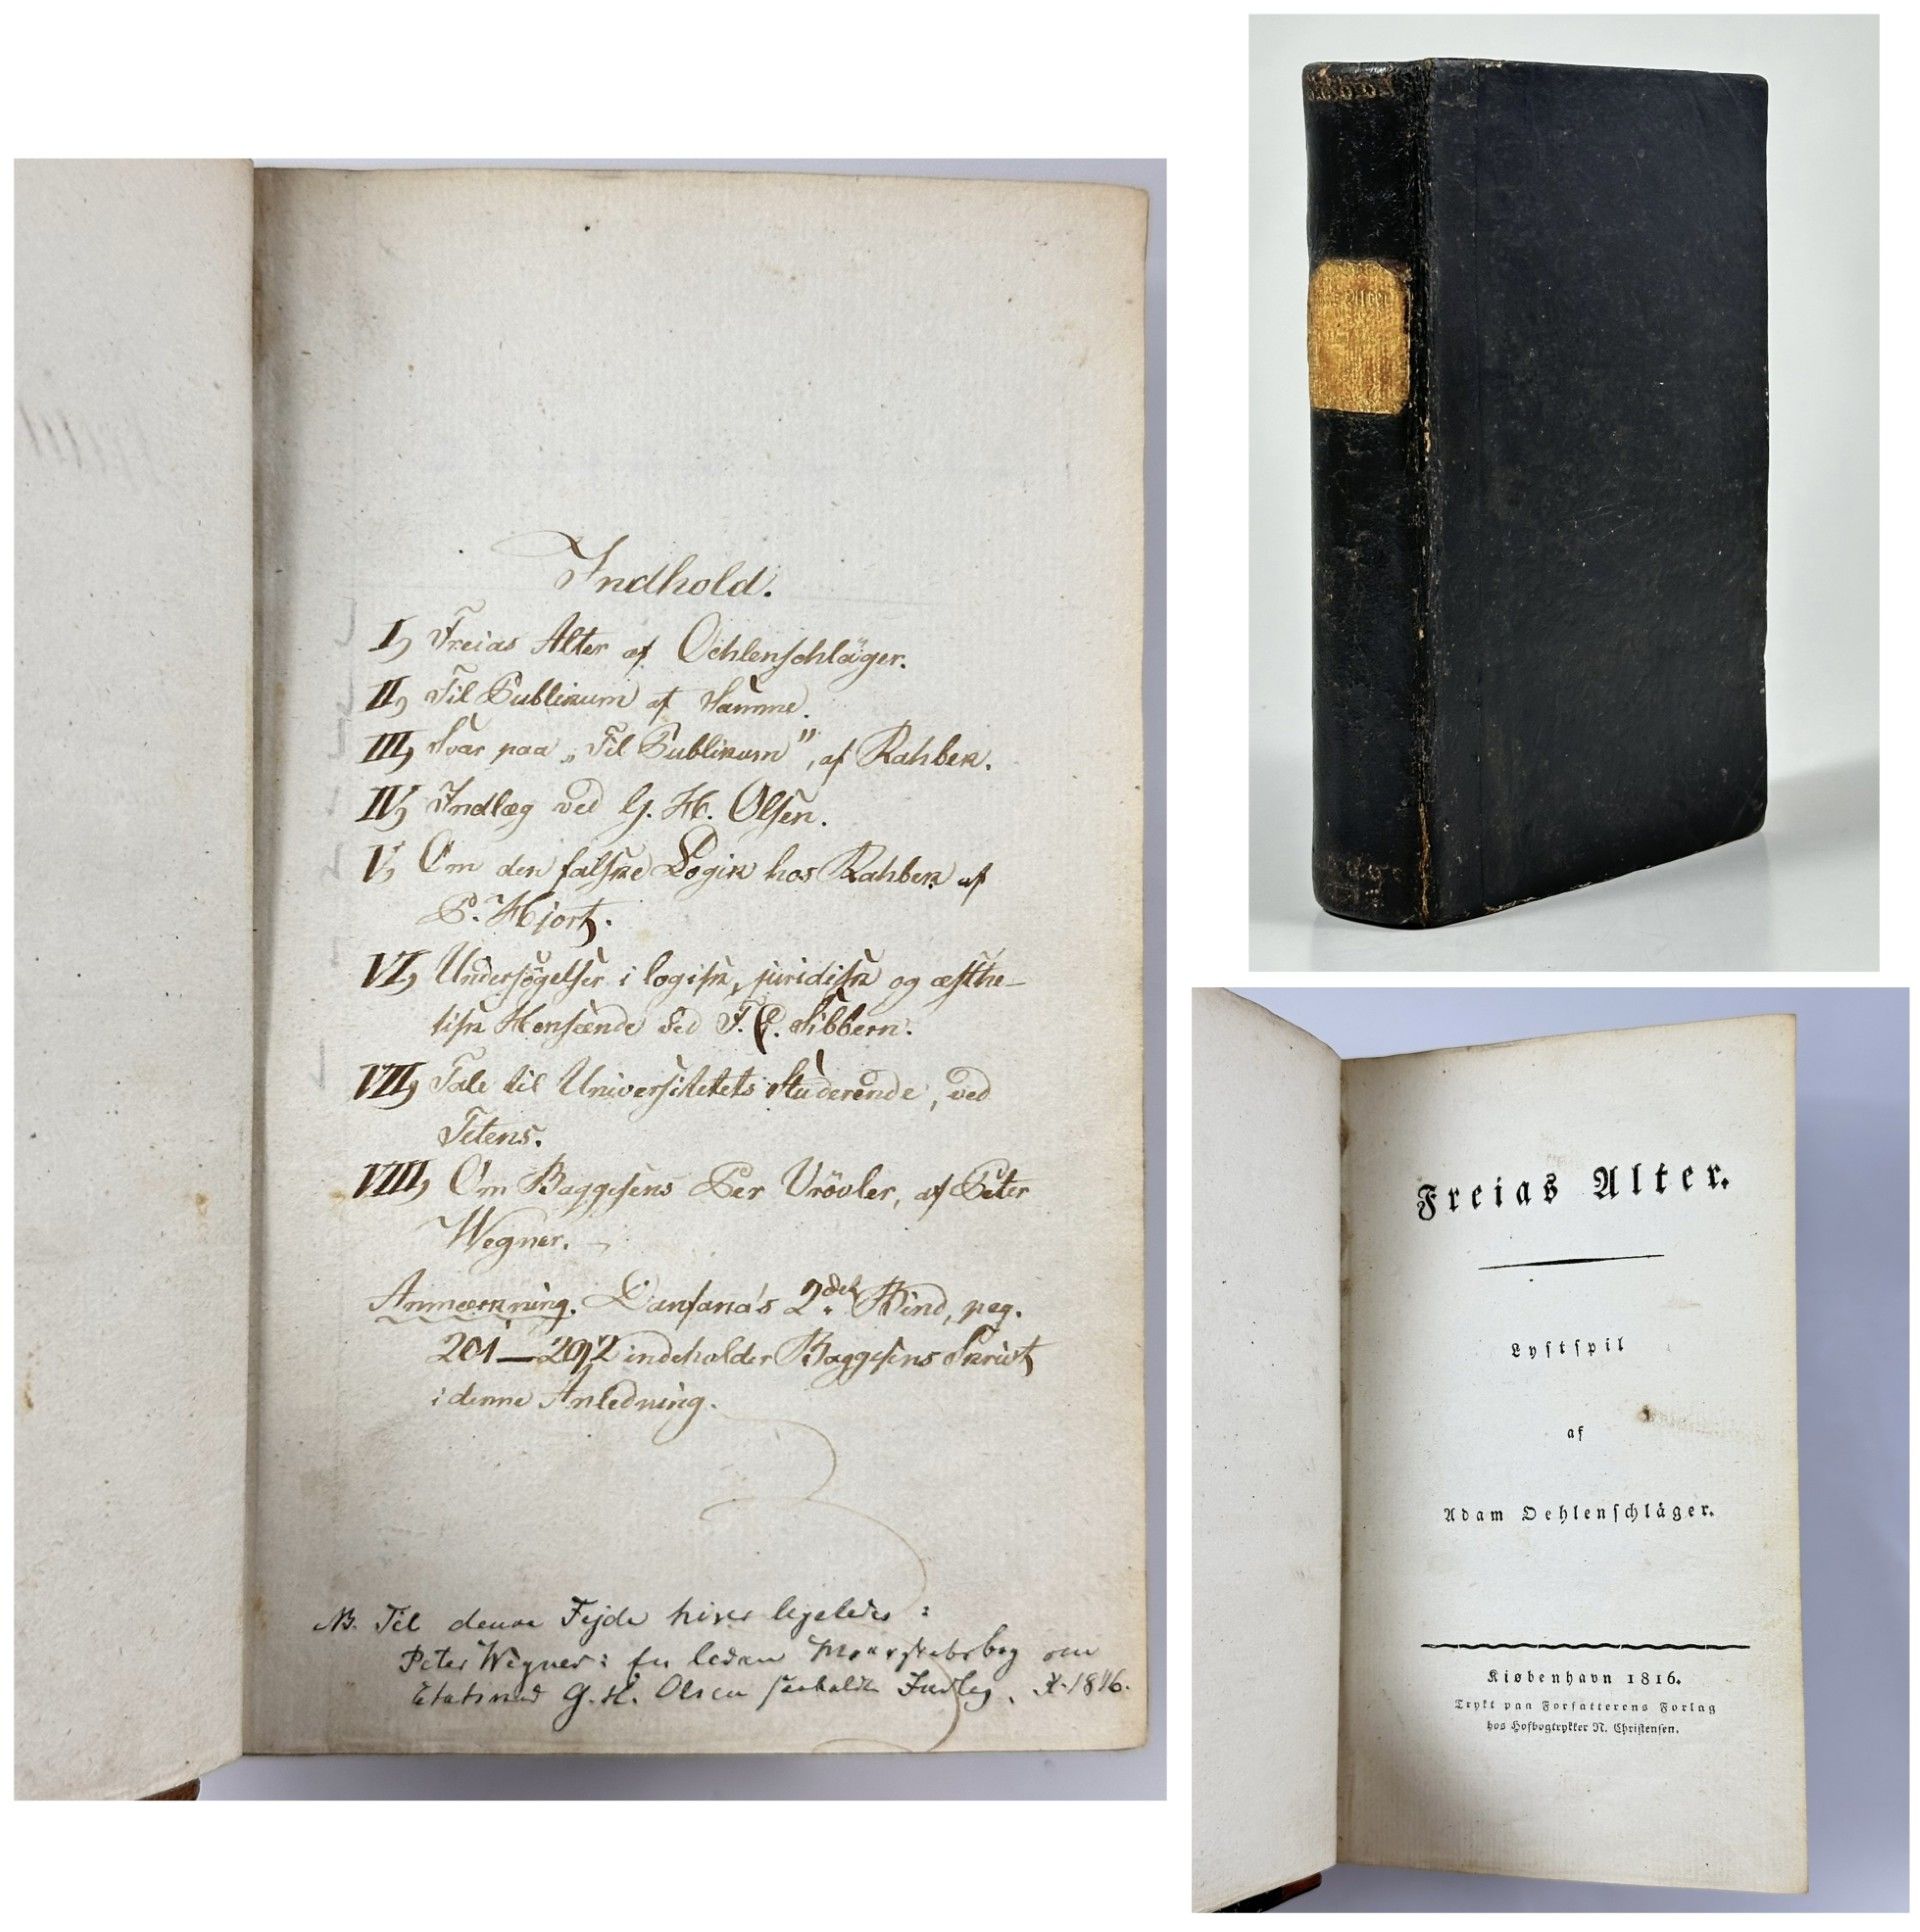 Indhold.
I, Freias Alter af Oehlenschläger.
II, Til Publikum af Samme.
III, Svar paa „Til Publikum”, af Rahbek.
IV, Indlæg ved G. H. Olsen.
V, Om den falske Logik hos Rahbek af
P. Hjort.
VI, Undersøgelser i logisk, juridisk og æsthe-
tisk Henseende ved F. C. Sibbern.
VII, Tale til Universitetets Studerende, ved
Tetens.
VIII, Om Baggesens Per Vrövler, af Peter
Wegner.
Anmærkning. Danfana's 2det Bind, pag.
201—292 indeholder Baggesens Skrivt
i denne Anledning.
NB. Til denne Fejde hører ligeledes:
Peter Wegner: En liden Moerskabsbog om
Etatsraad G. H. Olsen saakaldte Indlæg. K. 1816.
Alter
Freias Alter.
Lystspil
af
Adam Oehlenschläger.
Kiøbenhavn 1816.
Trykt paa Forfatterens Forlag
hos Hofbogtrykker N. Christensen.